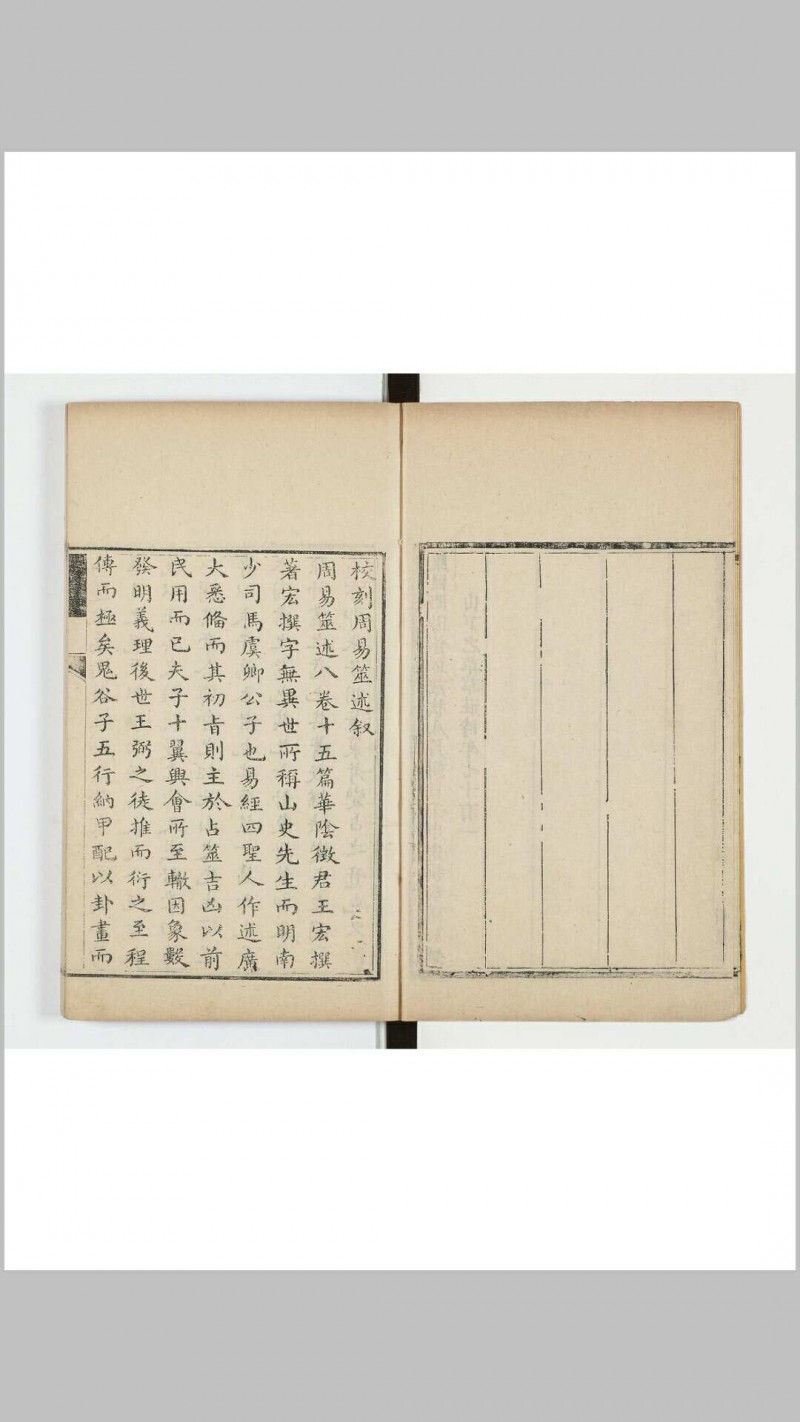 校刻周易筮述叙
周易筮述八卷十五篇華陰徴君王宏撰
著宏撰字無異世所稱山史先生而明南
少司馬虞卿公子也易經四聖人作述廣
大悉備而其初肯則主於占筮吉凶以前
民用而已夫子十翼興會所至轍因象數
發明義理後世王弼之徒推而衍之至程
傳而極矣鬼谷子五行納甲配以卦畫而